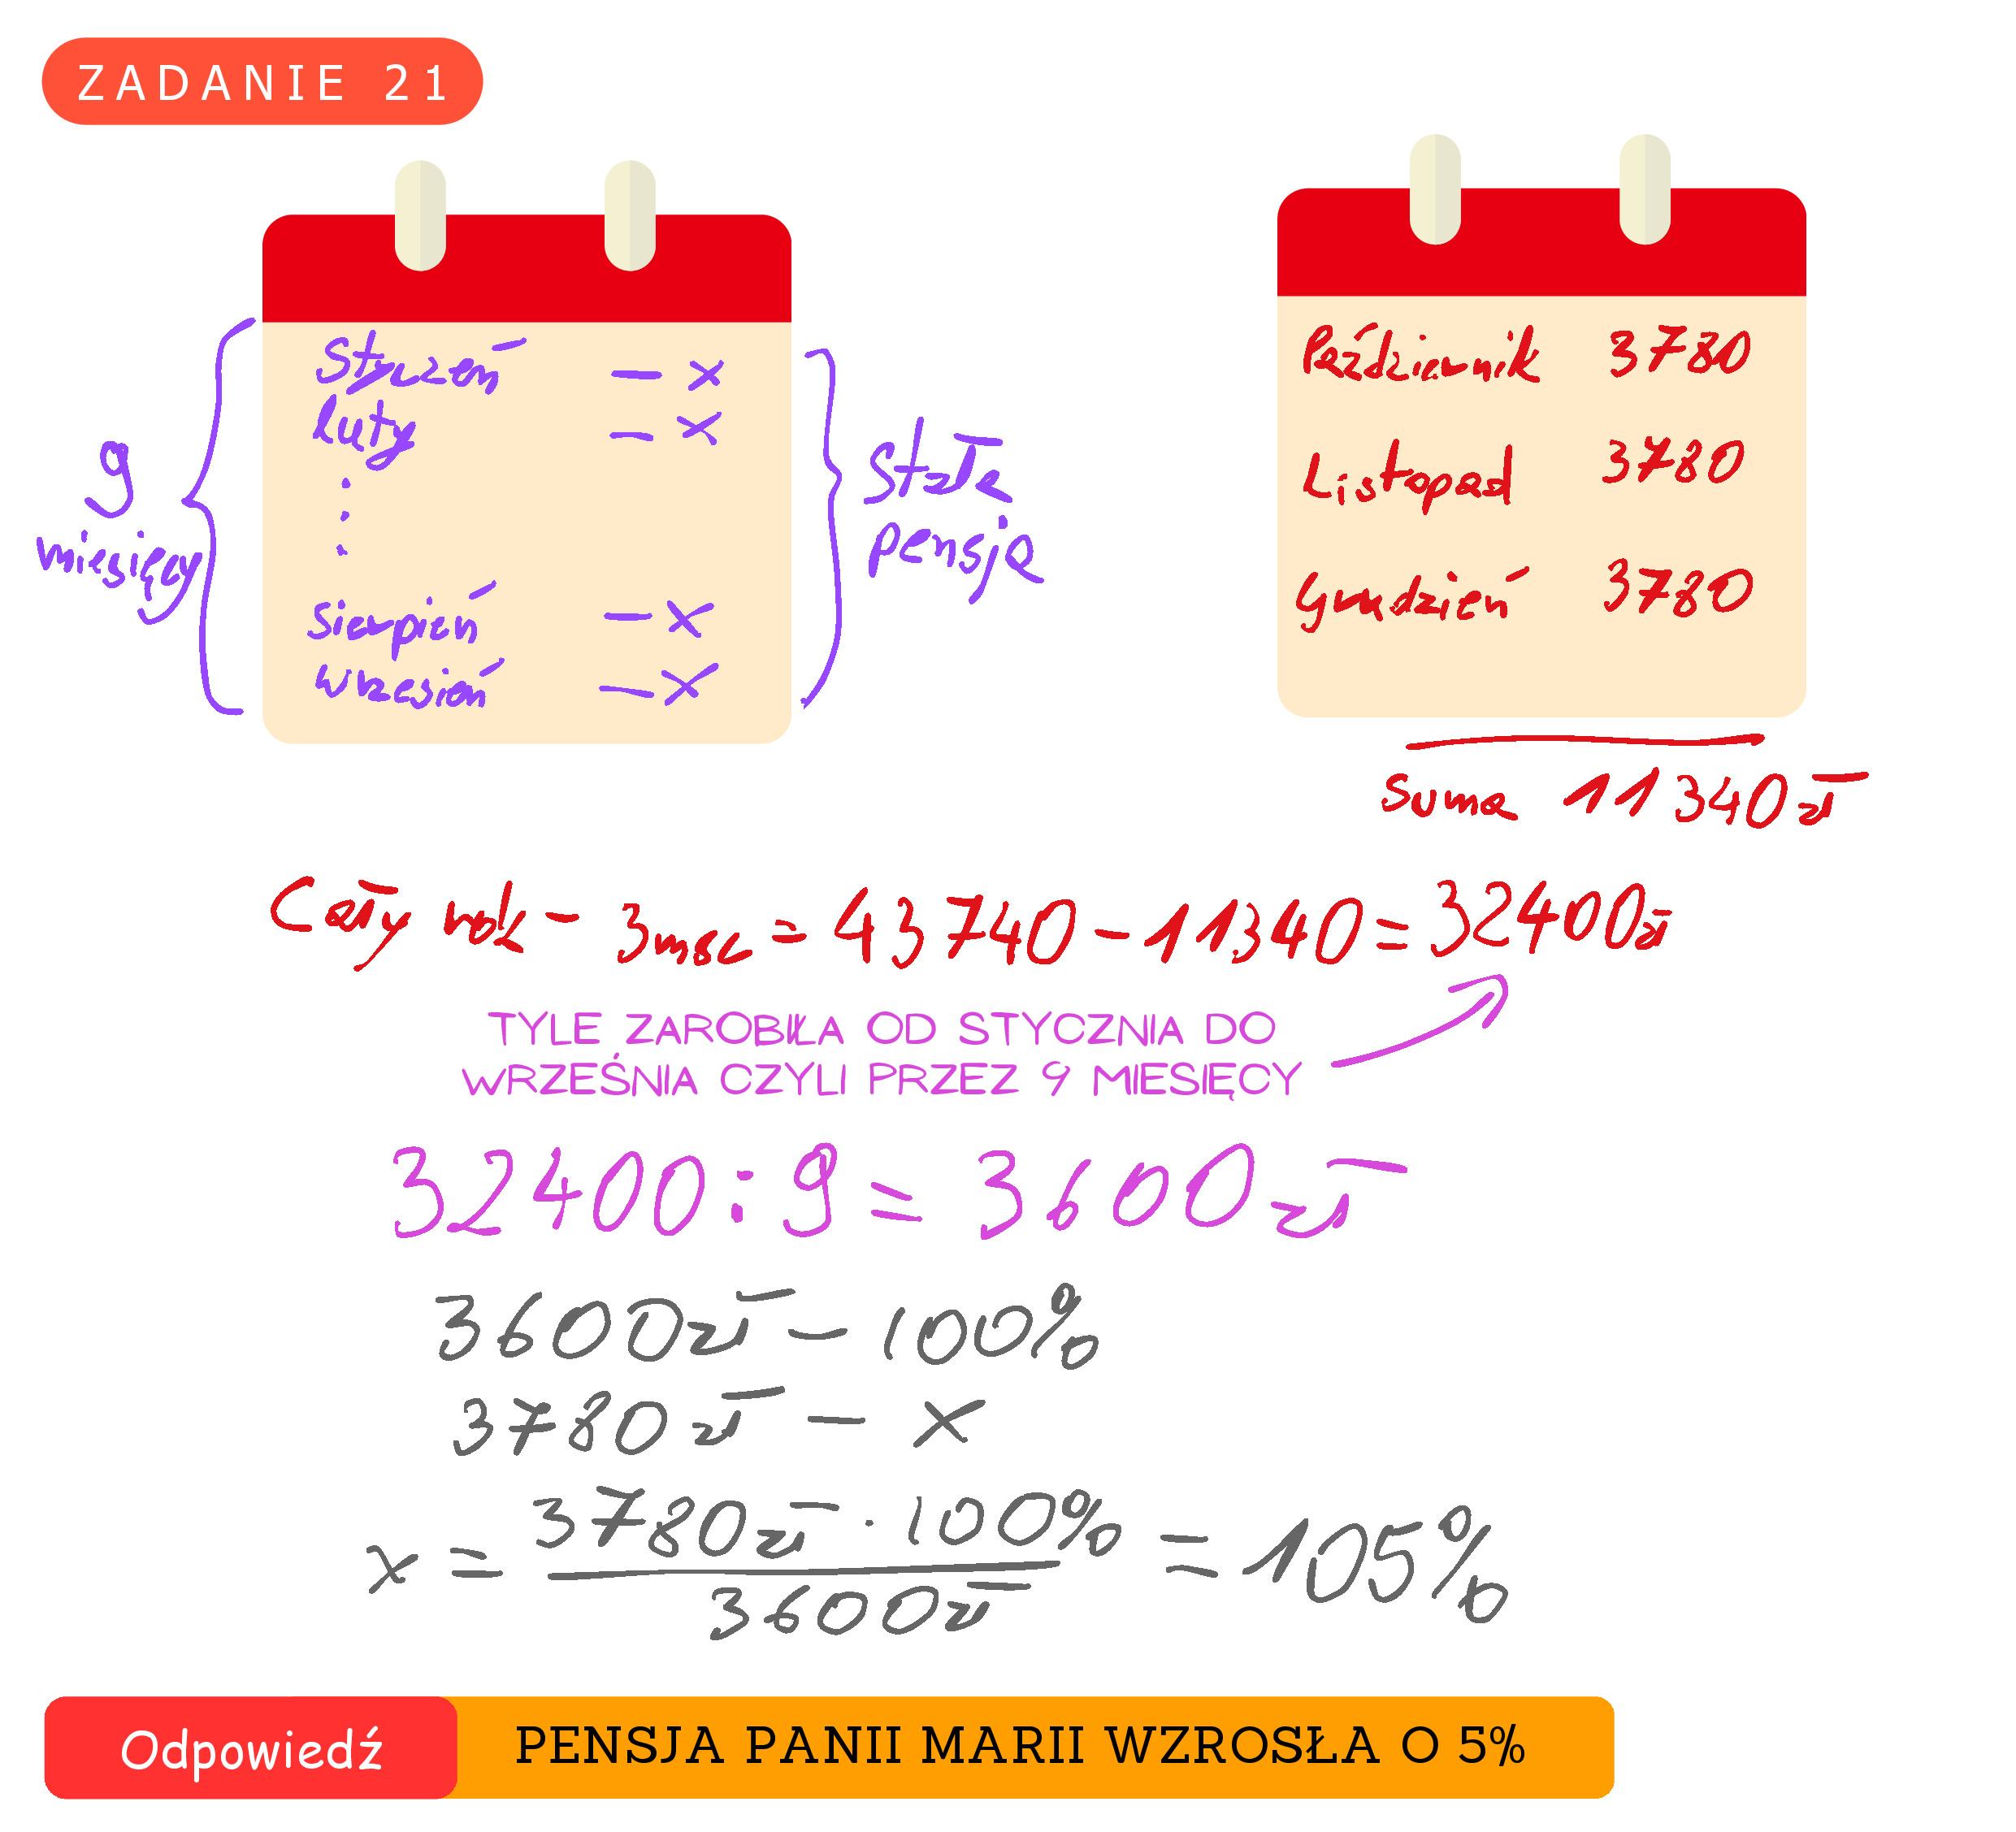 ZADANIE 21
9 miesięcy
Styczeń – x
Luty – x
Sierpień – x
Wrzesień – x
Stała pensja
Październik 3780
Listopad 3780
Grudzień 3780
Suma 11340zł
Cały rok - 3msc = 43740 - 11340 = 32400zł
TYLE ZAROBIŁA OD STYCZNIA DO
WRZEŚNIA CZYLI PRZEZ 9 MIESIĘCY
32400 : 9 = 3600 zł
3600zł – 100%
3780 zł – x
x = 3780zł · 100% / 3600zł = 105%
Odpowiedź PENSJA PANII MARII WZROSŁA O 5%